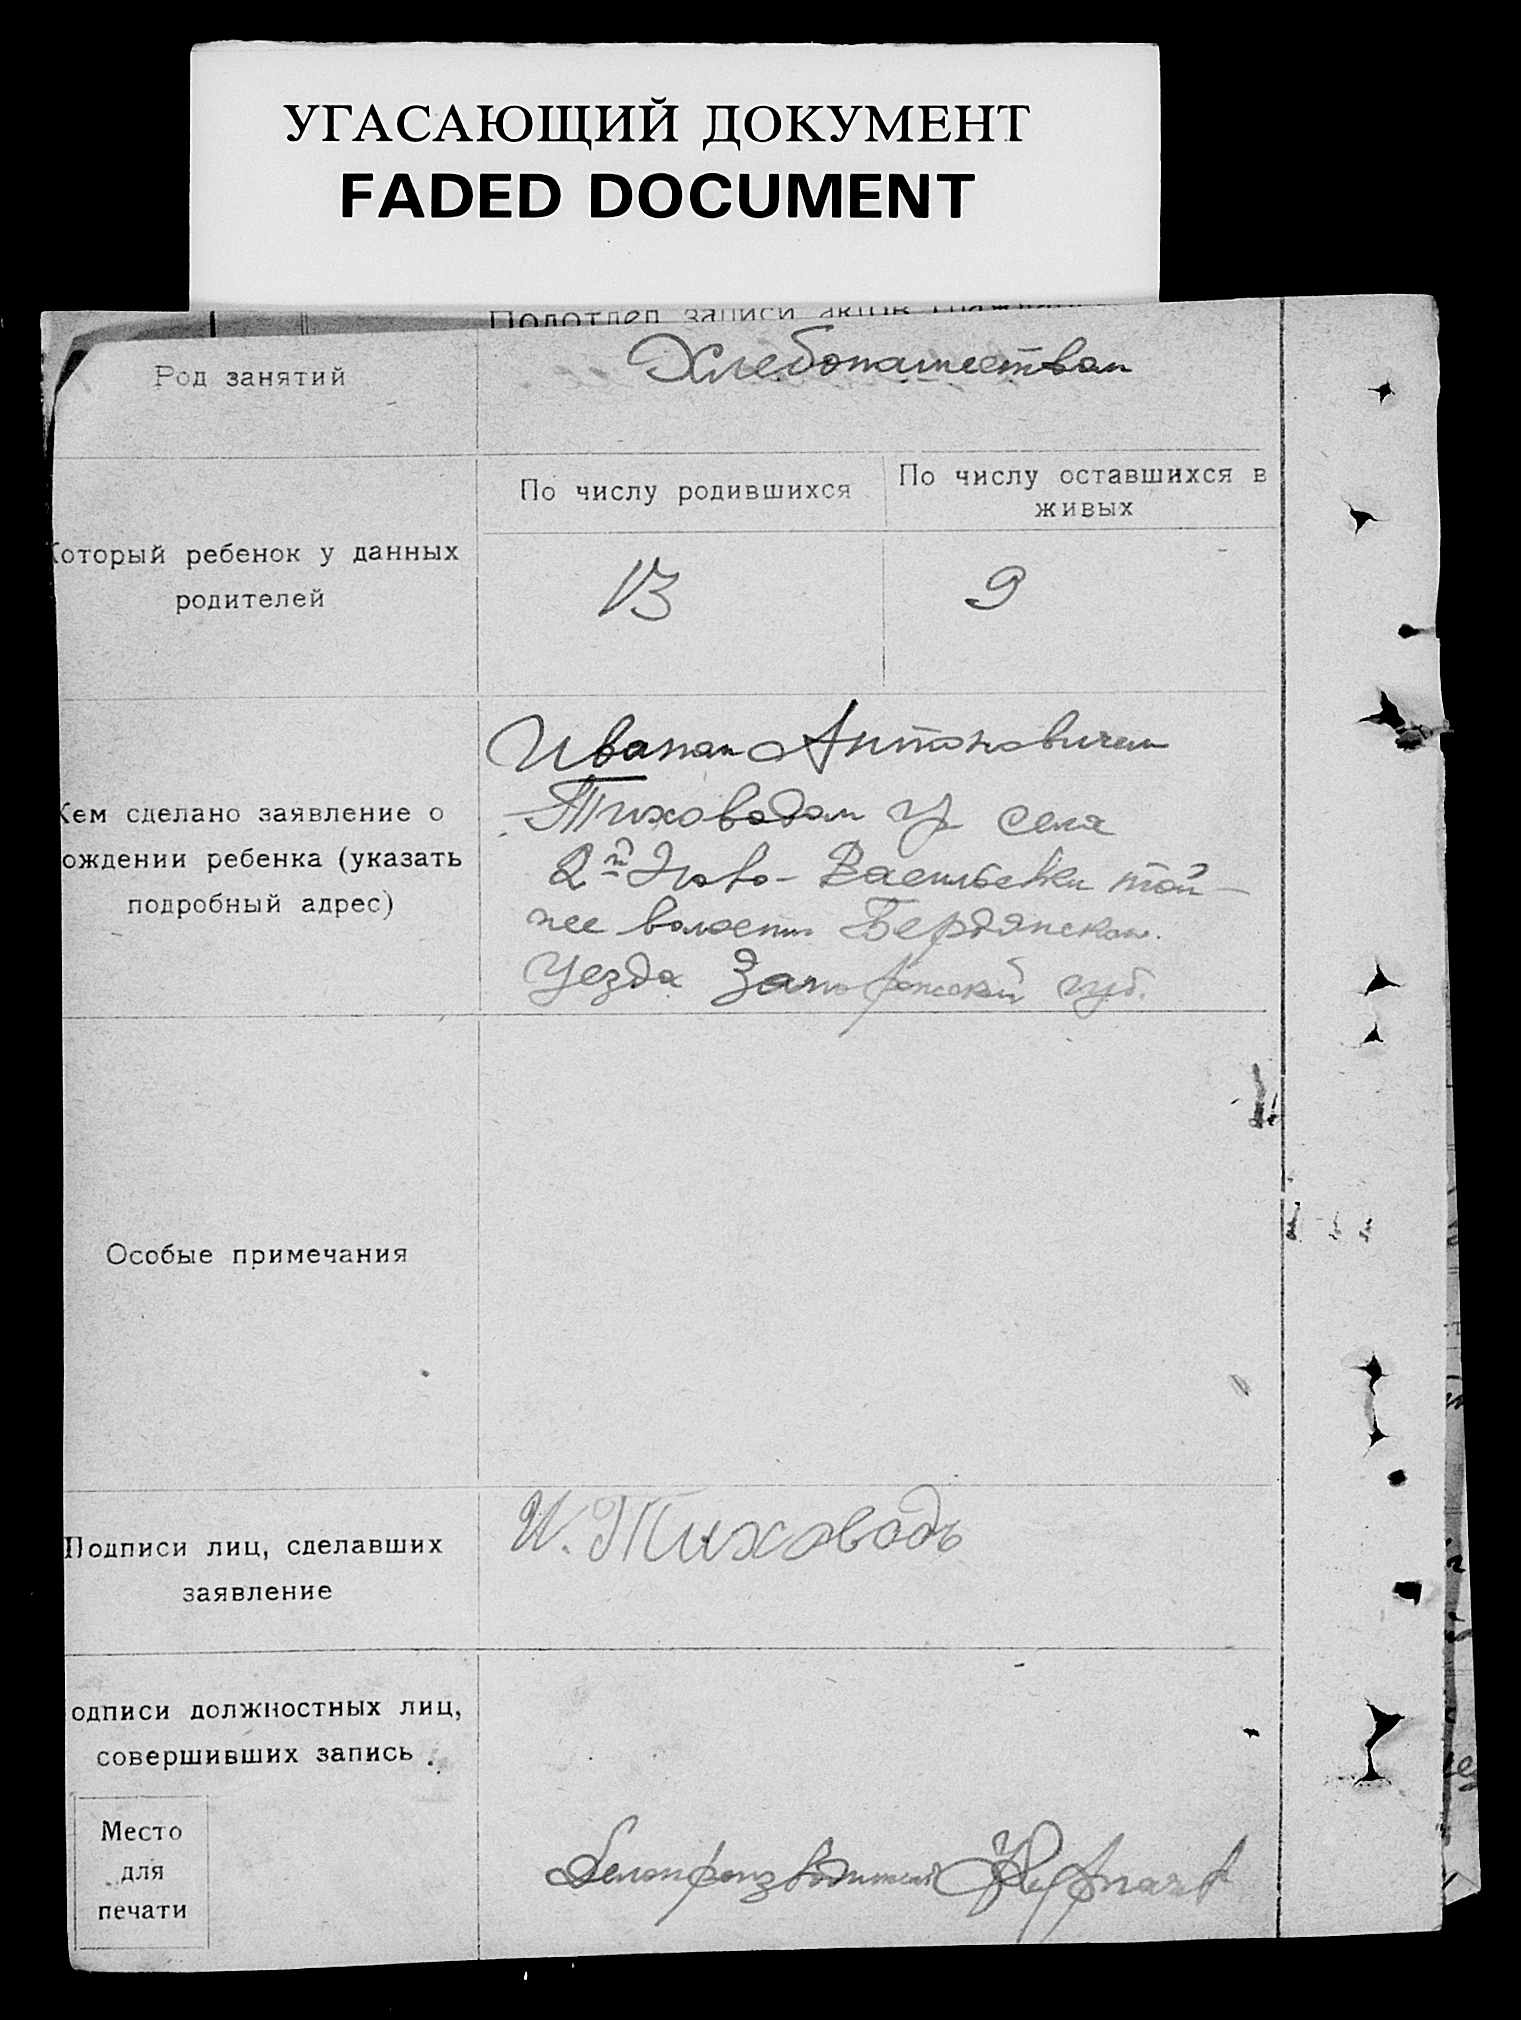 УГАСАЮЩИЙ ДОКУМЕНТ
FADED DOCUMENT
Подотдел записи актов
Род занятий
Хлебопашеством
Который ребенок у данных
родителей
По числу родившихся
По числу оставшихся в
живых
13
9
Кем сделано заявление о
ождении ребенка (указать
подробный адрес)
Иваном Антоновичем
Тиховодом гр села
2й Ново-Васильевки той-
же волости Бердянскаго
уезда Запорожской губ.
Особые примечания
Подписи лиц, сделавших
заявление
И. Тиховодъ
одписи должностных лиц,
совершивших запись
Место
для
печати
Делопроизводитель